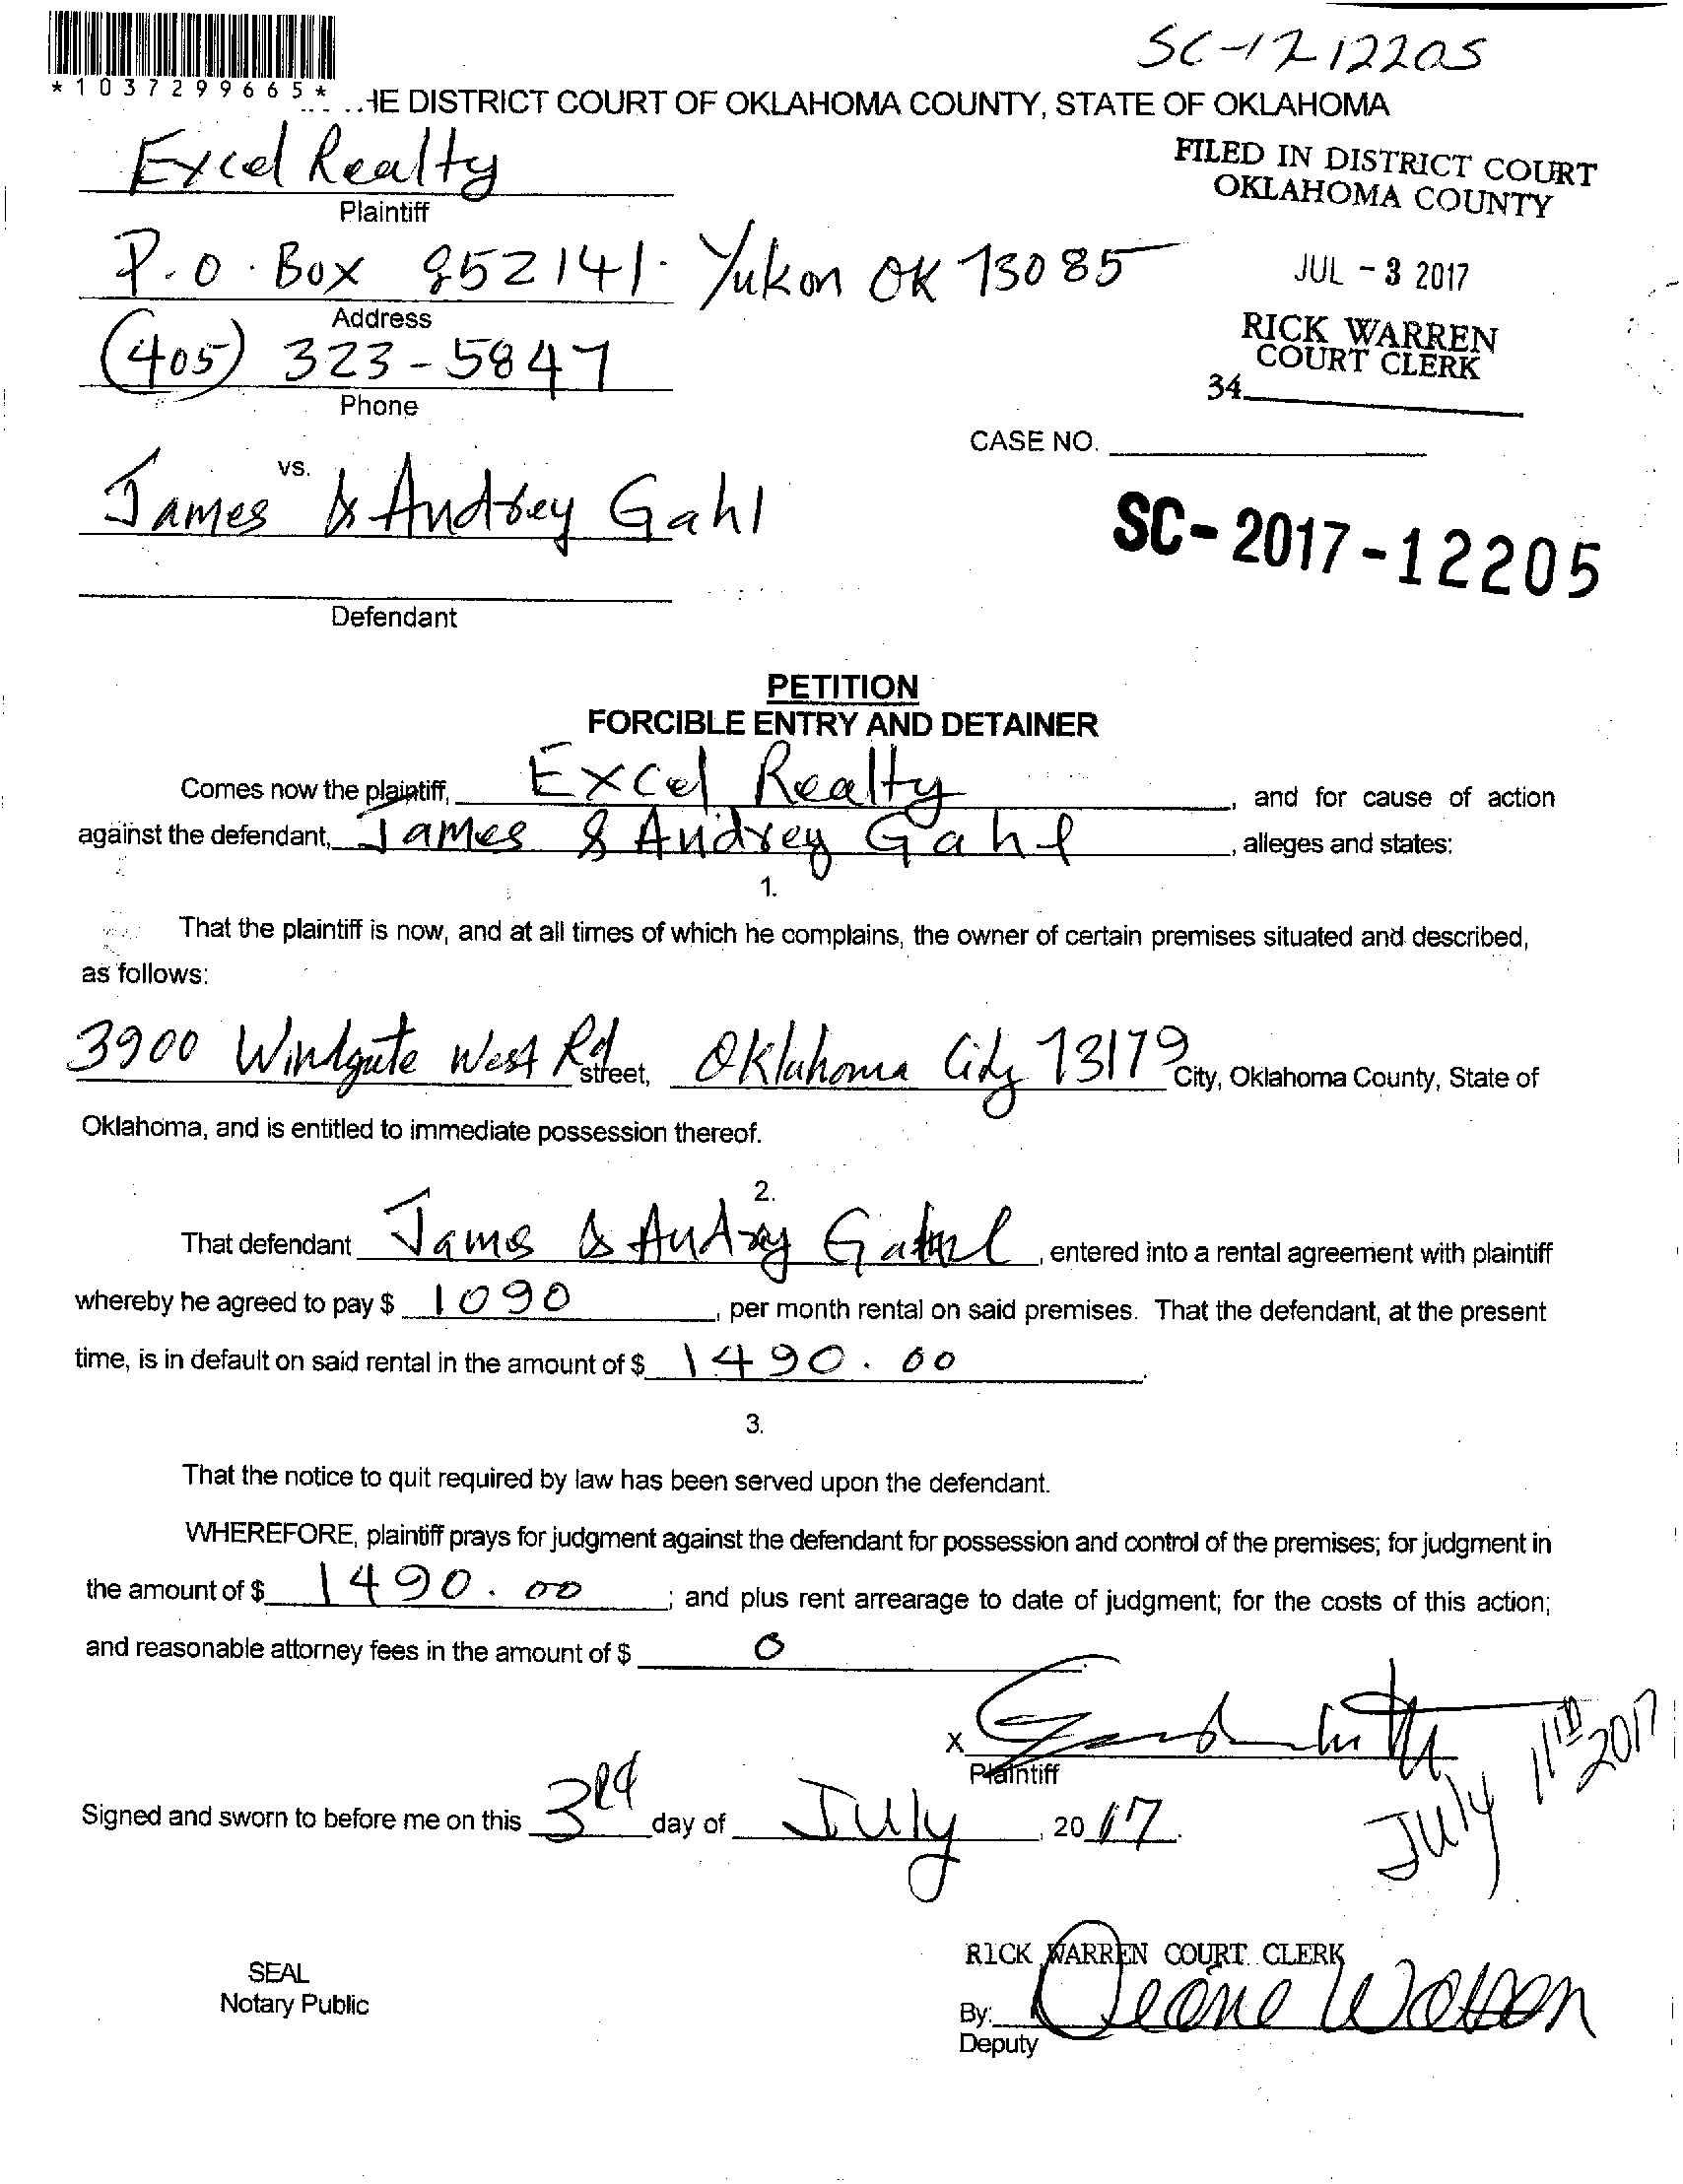 SC-17 12205
*1037299665*
HE DISTRICT COURT OF OKLAHOMA COUNTY, STATE OF OKLAHOMA
Excel Realty
Plaintiff
FILED IN DISTRICT COURT
OKLAHOMA COUNTY
P.O. Box 852141. Yukon OK 73085
Address
JUL - 3 2017
(405) 323-5847
Phone
RICK WARREN
COURT CLERK
34
CASE NO.
vs.
James & Audrey Gahl
SC-2017-12205
Defendant
PETITION
FORCIBLE ENTRY AND DETAINER
Comes now the plaintiff, Excel Realty, and for cause of action
against the defendant, James & Audrey Gahl, alleges and states:
1.
That the plaintiff is now, and at all times of which he complains, the owner of certain premises situated and described,
as follows:
3900 Windgate West Rd street, Oklahoma City 73179 City, Oklahoma County, State of
Oklahoma, and is entitled to immediate possession thereof.
2.
That defendant James & Audrey, entered into a rental agreement with plaintiff
whereby he agreed to pay $ 1090, per month rental on said premises. That the defendant, at the present
time, is in default on said rental in the amount of $ 1490.00.
3.
That the notice to quit required by law has been served upon the defendant.
WHEREFORE, plaintiff prays for judgment against the defendant for possession and control of the premises; for judgment in
the amount of $ 1490.00; and plus rent arrearage to date of judgment; for the costs of this action;
and reasonable attorney fees in the amount of $ 0
X
Plaintiff
July 11th 2017
Signed and sworn to before me on this 3rd day of July, 2017.
SEAL
Notary Public
RICK WARREN COURT CLERK
By:
Deputy